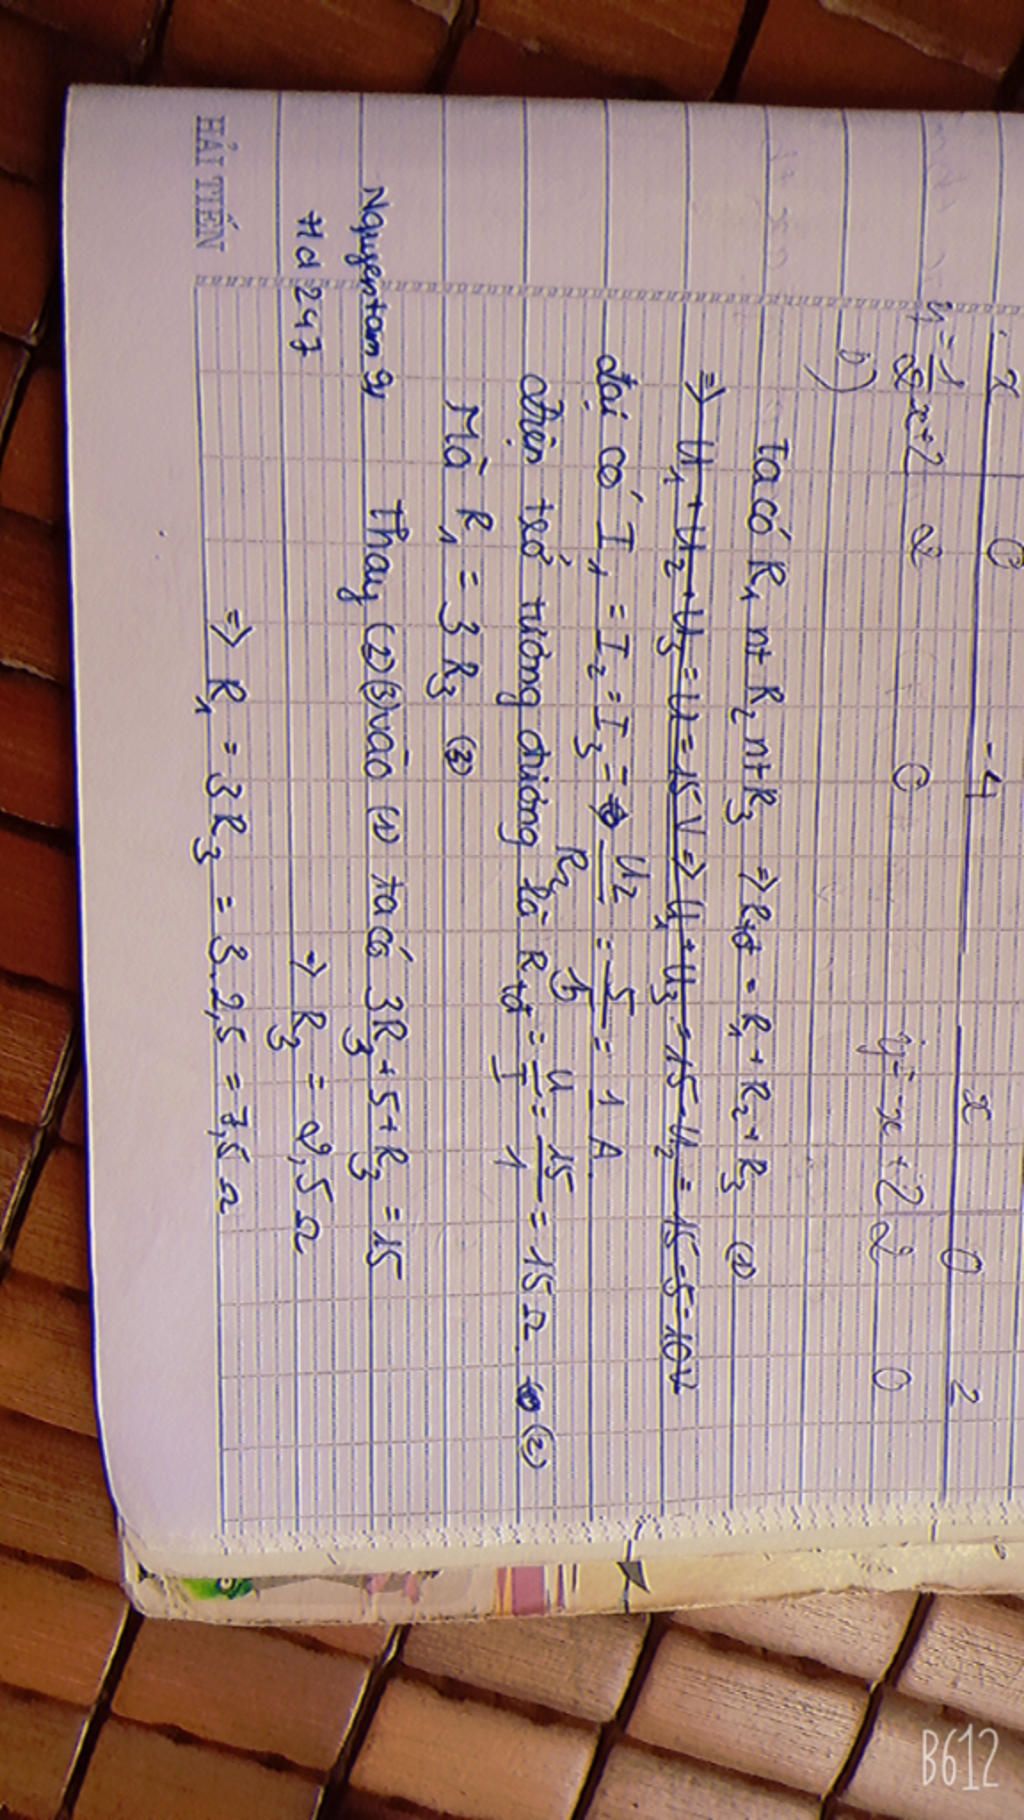 x 0 -4 x 0 2
y = 1/2 x + 2 2 0 y = -x + 2 2 0
b)
Ta có R1 nt R2 nt R3 => Rtđ = R1 + R2 + R3 (1)
=> U1 + U2 + U3 = U = 15V => U1 + U3 = 15 - U2 = 15 - 5 = 10V
Lại có I1 = I2 = I3 = U2/R2 = 5/5 = 1 A
điện trở tương đương là Rtđ = U/I = 15/1 = 15 Ω (2)
Mà R1 = 3 R3 (3)
Nguyentam 9 Thay (2)(3) vào (1) ta có 3R3 + 5 + R3 = 15
Hd 247 => R3 = 2,5 Ω
=> R1 = 3R3 = 3.2,5 = 7,5 Ω
HẢI TIẾN
B612